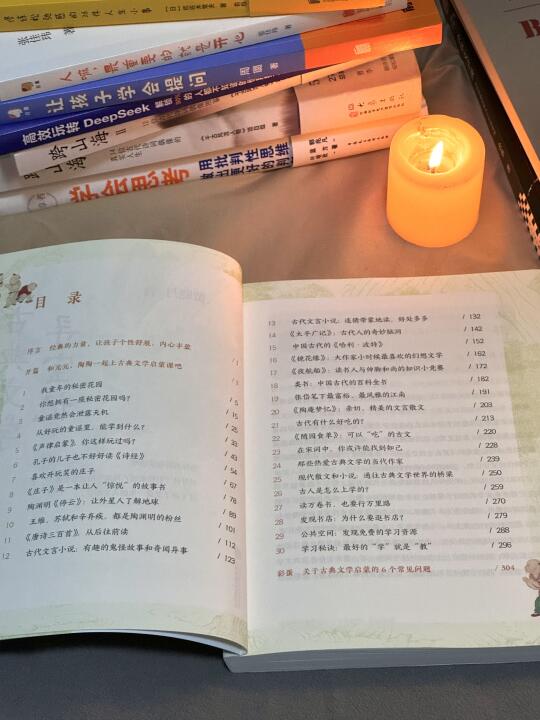 张佳玮
人啊,最重要的就是开心
让孩子学会提问 周丽
高效玩转DeepSeek
跨山海 II
学会思考
用批判性思维
做出更好的判断
目 录
序言 经典的力量,让孩子个性舒展,内心丰盈 / 1
开篇 和元元、陶陶一起上古典文学启蒙课吧 / 1
1 我童年的秘密花园 / 5
2 你想拥有一座秘密花园吗? / 15
3 童谣竟然会泄露天机 / 25
4 从好玩的童谣里,能学到什么? / 33
5 《声律启蒙》,你这样玩过吗? / 43
6 孔子的儿子也不好好读《诗经》 / 54
7 喜欢开玩笑的庄子 / 67
8 《庄子》是一本让人“惊悦”的故事书 / 78
9 陶渊明《停云》:让外星人了解地球 / 89
10 王维、苏轼和辛弃疾,都是陶渊明的粉丝 / 101
11 《唐诗三百首》,从后往前读 / 112
12 古代文言小说:有趣的鬼怪故事和奇闻异事 / 123
13 古代文言小说:连猜带蒙地读,好处多多 / 132
14 《太平广记》:古代人的奇妙脑洞 / 142
15 中国古代的《哈利·波特》 / 152
16 《镜花缘》:大作家小时候最喜欢的幻想文学 / 162
17 《夜航船》:读书人与伸脚和尚的知识小竞赛 / 172
18 类书:中国古代的百科全书 / 182
19 张岱笔下最富裕、最风雅的江南 / 191
20 《陶庵梦忆》:亲切、精美的文言散文 / 203
21 古代有什么好吃的? / 213
22 《随园食单》:可以“吃”的古文 / 220
23 在家训中,你或许能找到知己 / 228
24 那些热爱古典文学的当代作家 / 239
25 现代散文和小说:通往古典文学世界的桥梁 / 250
26 古人是怎么上学的? / 259
27 读万卷书,也要行万里路 / 270
28 发现书店:为什么要逛书店? / 279
29 公共空间:发现免费的学习资源 / 288
30 学习秘诀:最好的“学”就是“教” / 296
彩蛋 关于古典文学启蒙的6个常见问题 / 304